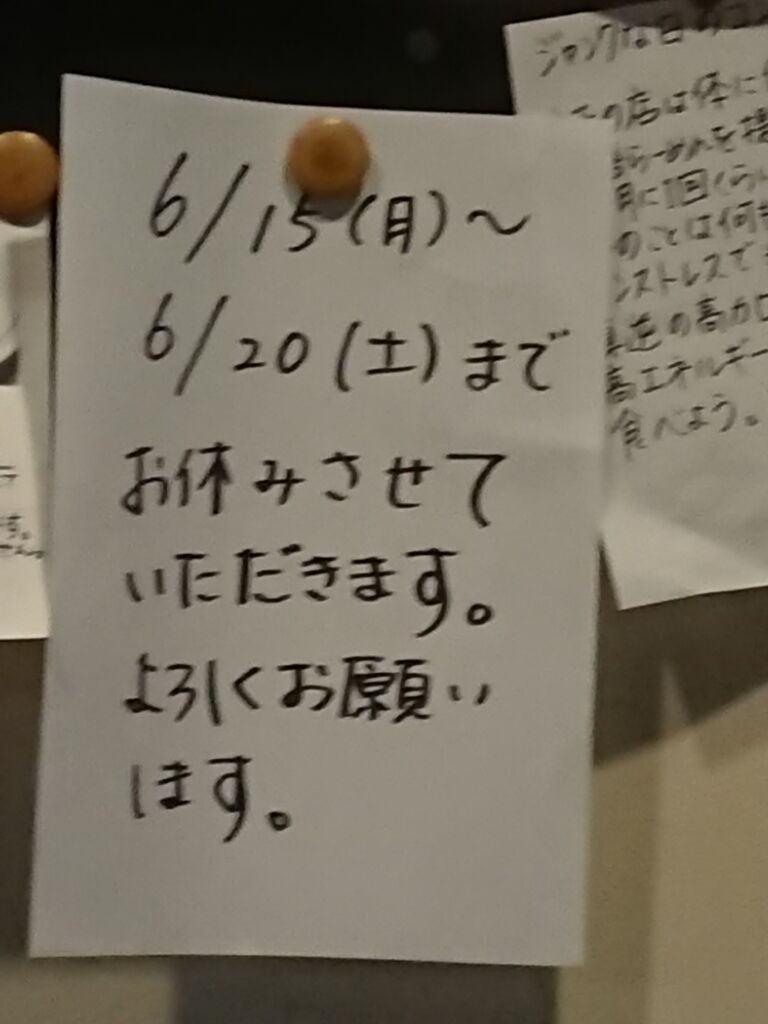 6/15(月)～
6/20(土)まで
お休みさせて
いただきます。
よろしくお願い
します。
ジャンクな
の店は体に
らーめんを
月に1回くらい
のことは何
ンストレスで
の高カロ
高エネルギー
食べよう。
す。